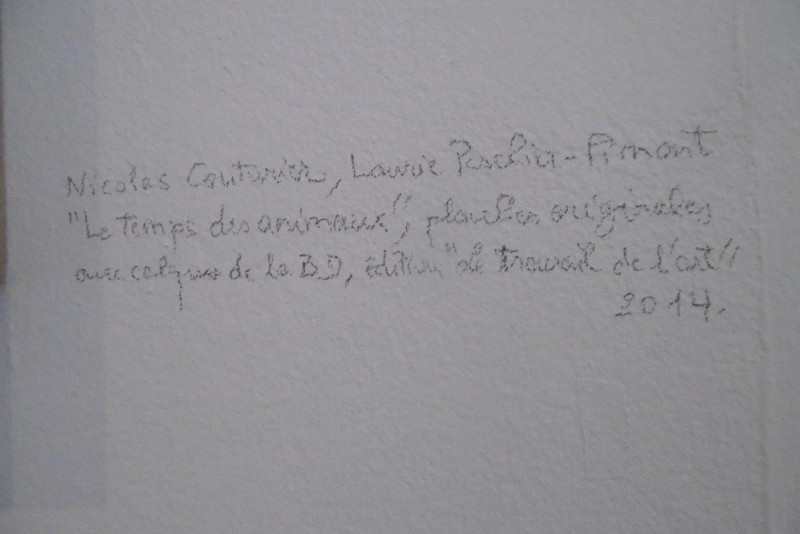 Nicolas Couturier, Laurie Peschier-Pimont
"Le temps des animaux", planches originales
avec calques de la BD, édition "le travail de l'art"
2014.